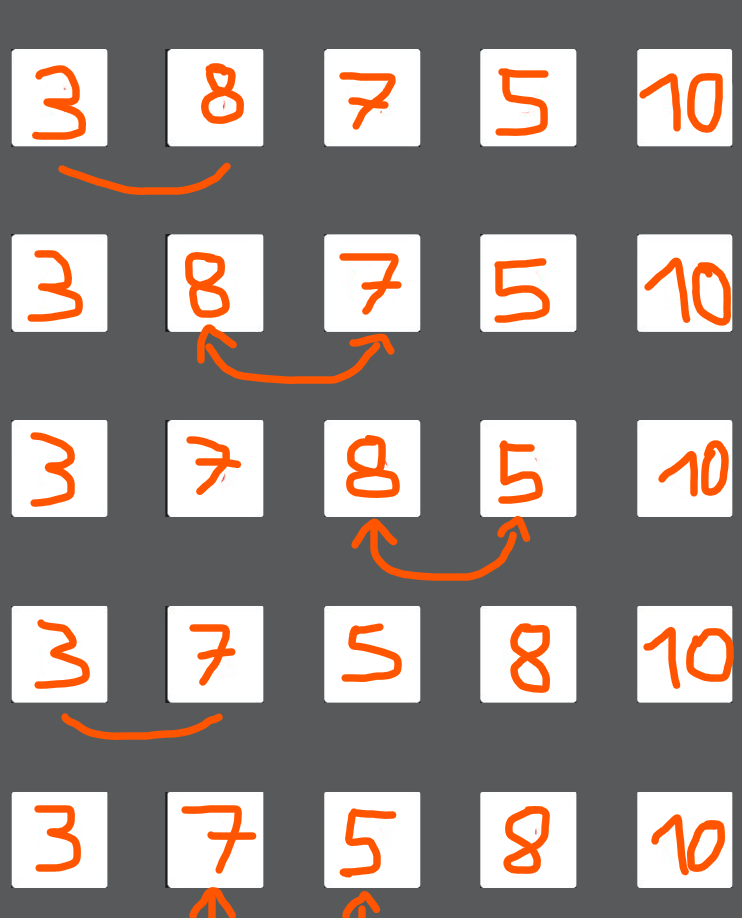 3 8 7 5 10
3 8 7 5 10
3 7 8 5 10
3 7 5 8 10
3 7 5 8 10